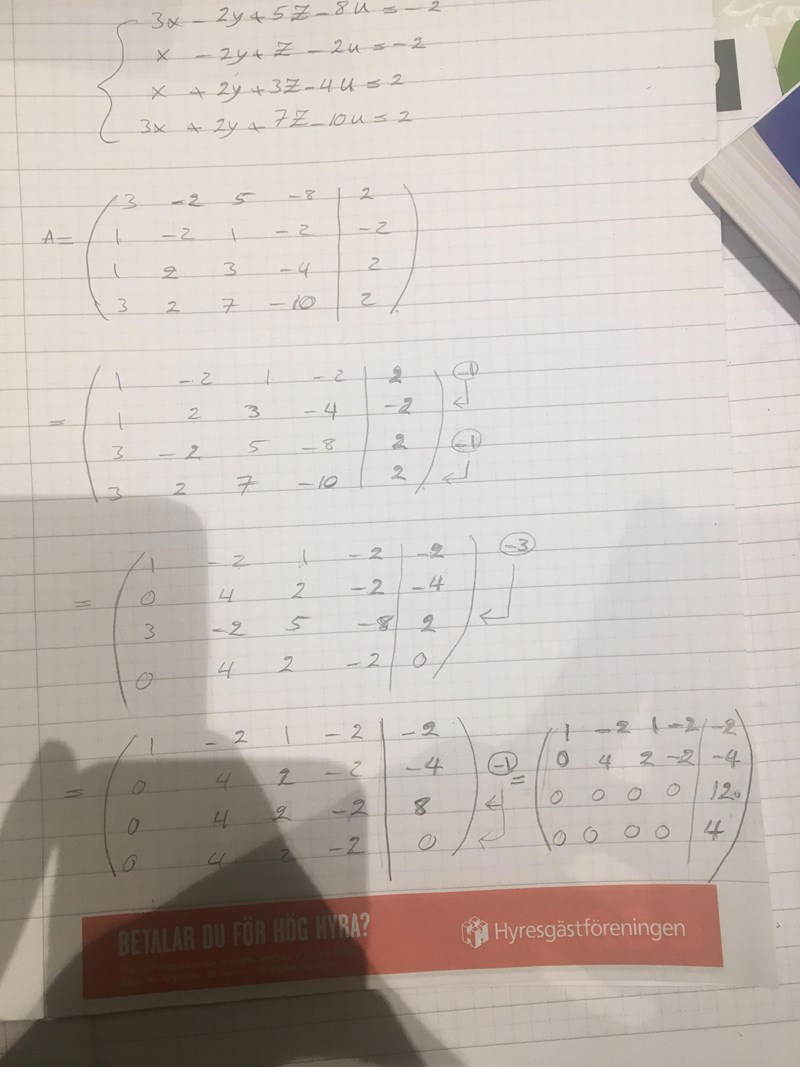 3x - 2y + 5z - 8u = -2
x - 2y + z - 2u = -2
x + 2y + 3z - 4u = 2
3x + 2y + 7z - 10u = 2
3 -2 5 -8 | 2
A = 1 -2 1 -2 | -2
1 2 3 -4 | 2
3 2 7 -10 | 2
1 -2 1 -2 | 2 (-1)
= 1 2 3 -4 | -2
3 -2 5 -8 | 2 (-1)
3 2 7 -10 | 2
1 -2 1 -2 | -2 (-3)
= 0 4 2 -2 | -4
3 -2 5 -8 | 2
0 4 2 -2 | 0
1 -2 1 -2 | -2
= 0 4 2 -2 | -4 (-1)
0 4 2 -2 | 8
0 4 2 -2 | 0
= 1 -2 1 -2 | -2
0 4 2 -2 | -4
0 0 0 0 | 12
0 0 0 0 | 4
BETALAR DU FÖR HÖG HYRA?
Hyresgästföreningen